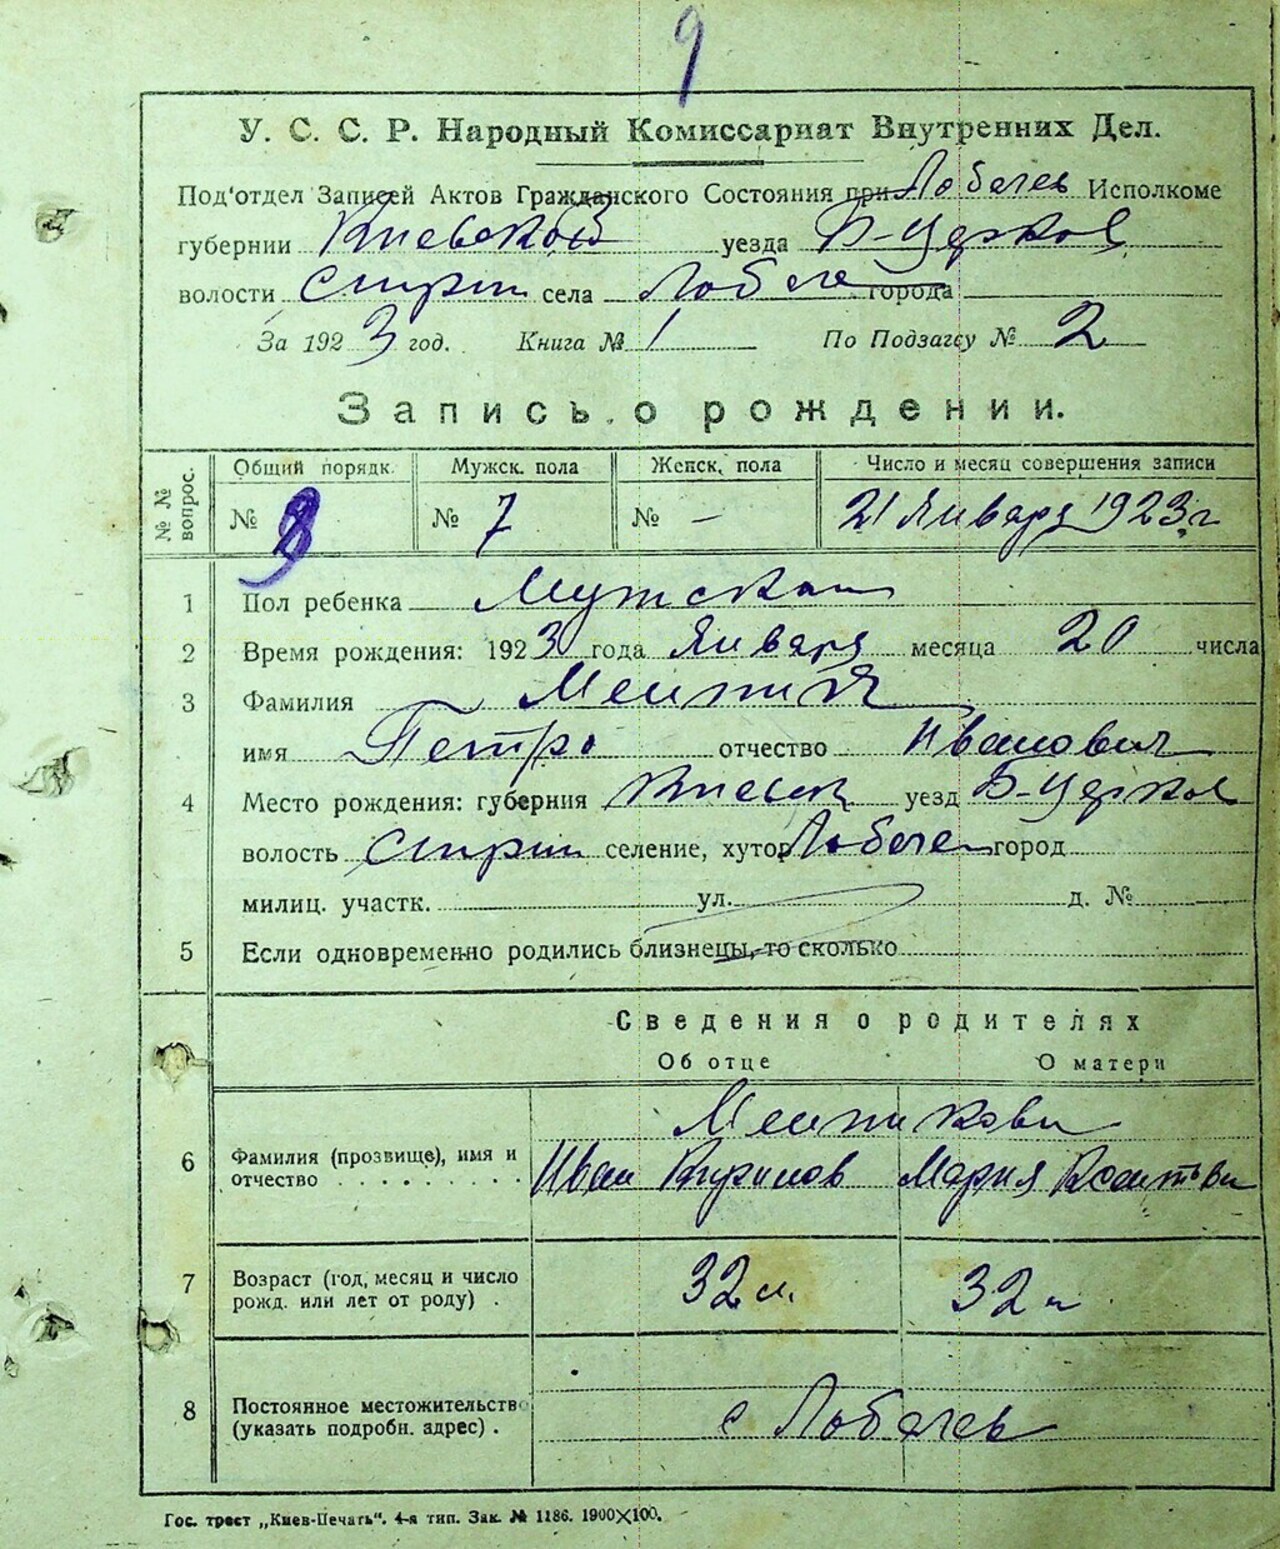 9
У. С. С. Р. Народный Комиссариат Внутренних Дел.
Под'отдел Записей Актов Гражданского Состояния при Лобачев Исполкоме
губернии Киевской уезда Б-Церков
волости села Лобаче города
За 1923 год. Книга № 1 По Подзагсу № 2
Запись о рождении.
№№ вопрос. Общий порядк. Мужск. пола Женск. пола Число и месяц совершения записи
№ № 7 № – 21 Января 1923 г
1 Пол ребенка Мужской
2 Время рождения: 1923 года Января месяца 20 числа
3 Фамилия
имя Петро отчество Иванович
4 Место рождения: губерния Киевск уезд Б-Церков
волость селение, хутор Лобаче город
милиц. участк. ул. д. №
5 Если одновременно родились близнецы, то сколько
Сведения о родителях
Об отце О матери
6 Фамилия (прозвище), имя и
отчество Иван Кирилов Мария
7 Возраст (год, месяц и число
рожд. или лет от роду) . 32 л. 32 л
8 Постоянное местожительство
(указать подробн. адрес) . с Лобачев
Гос. трест „Киев-Печать“. 4-я тип. Зак. № 1186. 1900×100.